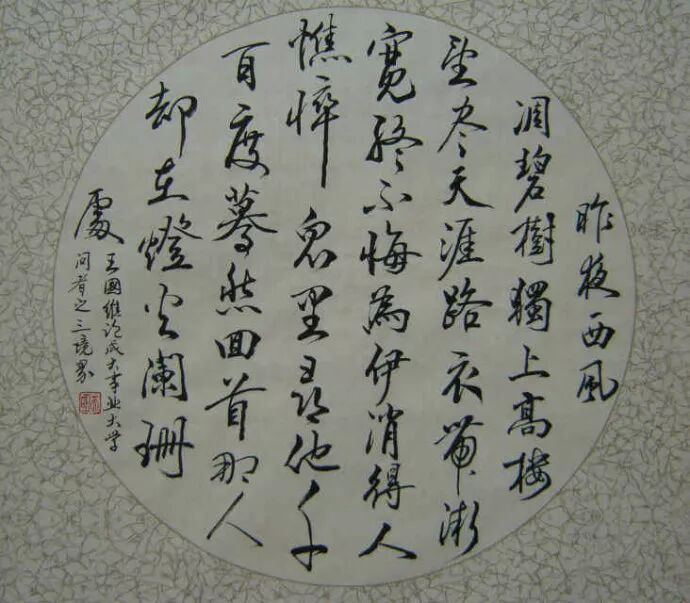 昨夜西風
凋碧樹獨上高楼
望尽天涯路衣帶漸
寬終不悔為伊消得人
憔悴眾里尋他千
百度驀然回首那人
却在燈火瀾珊
處
王國維论成大事业大学
问者之三境界